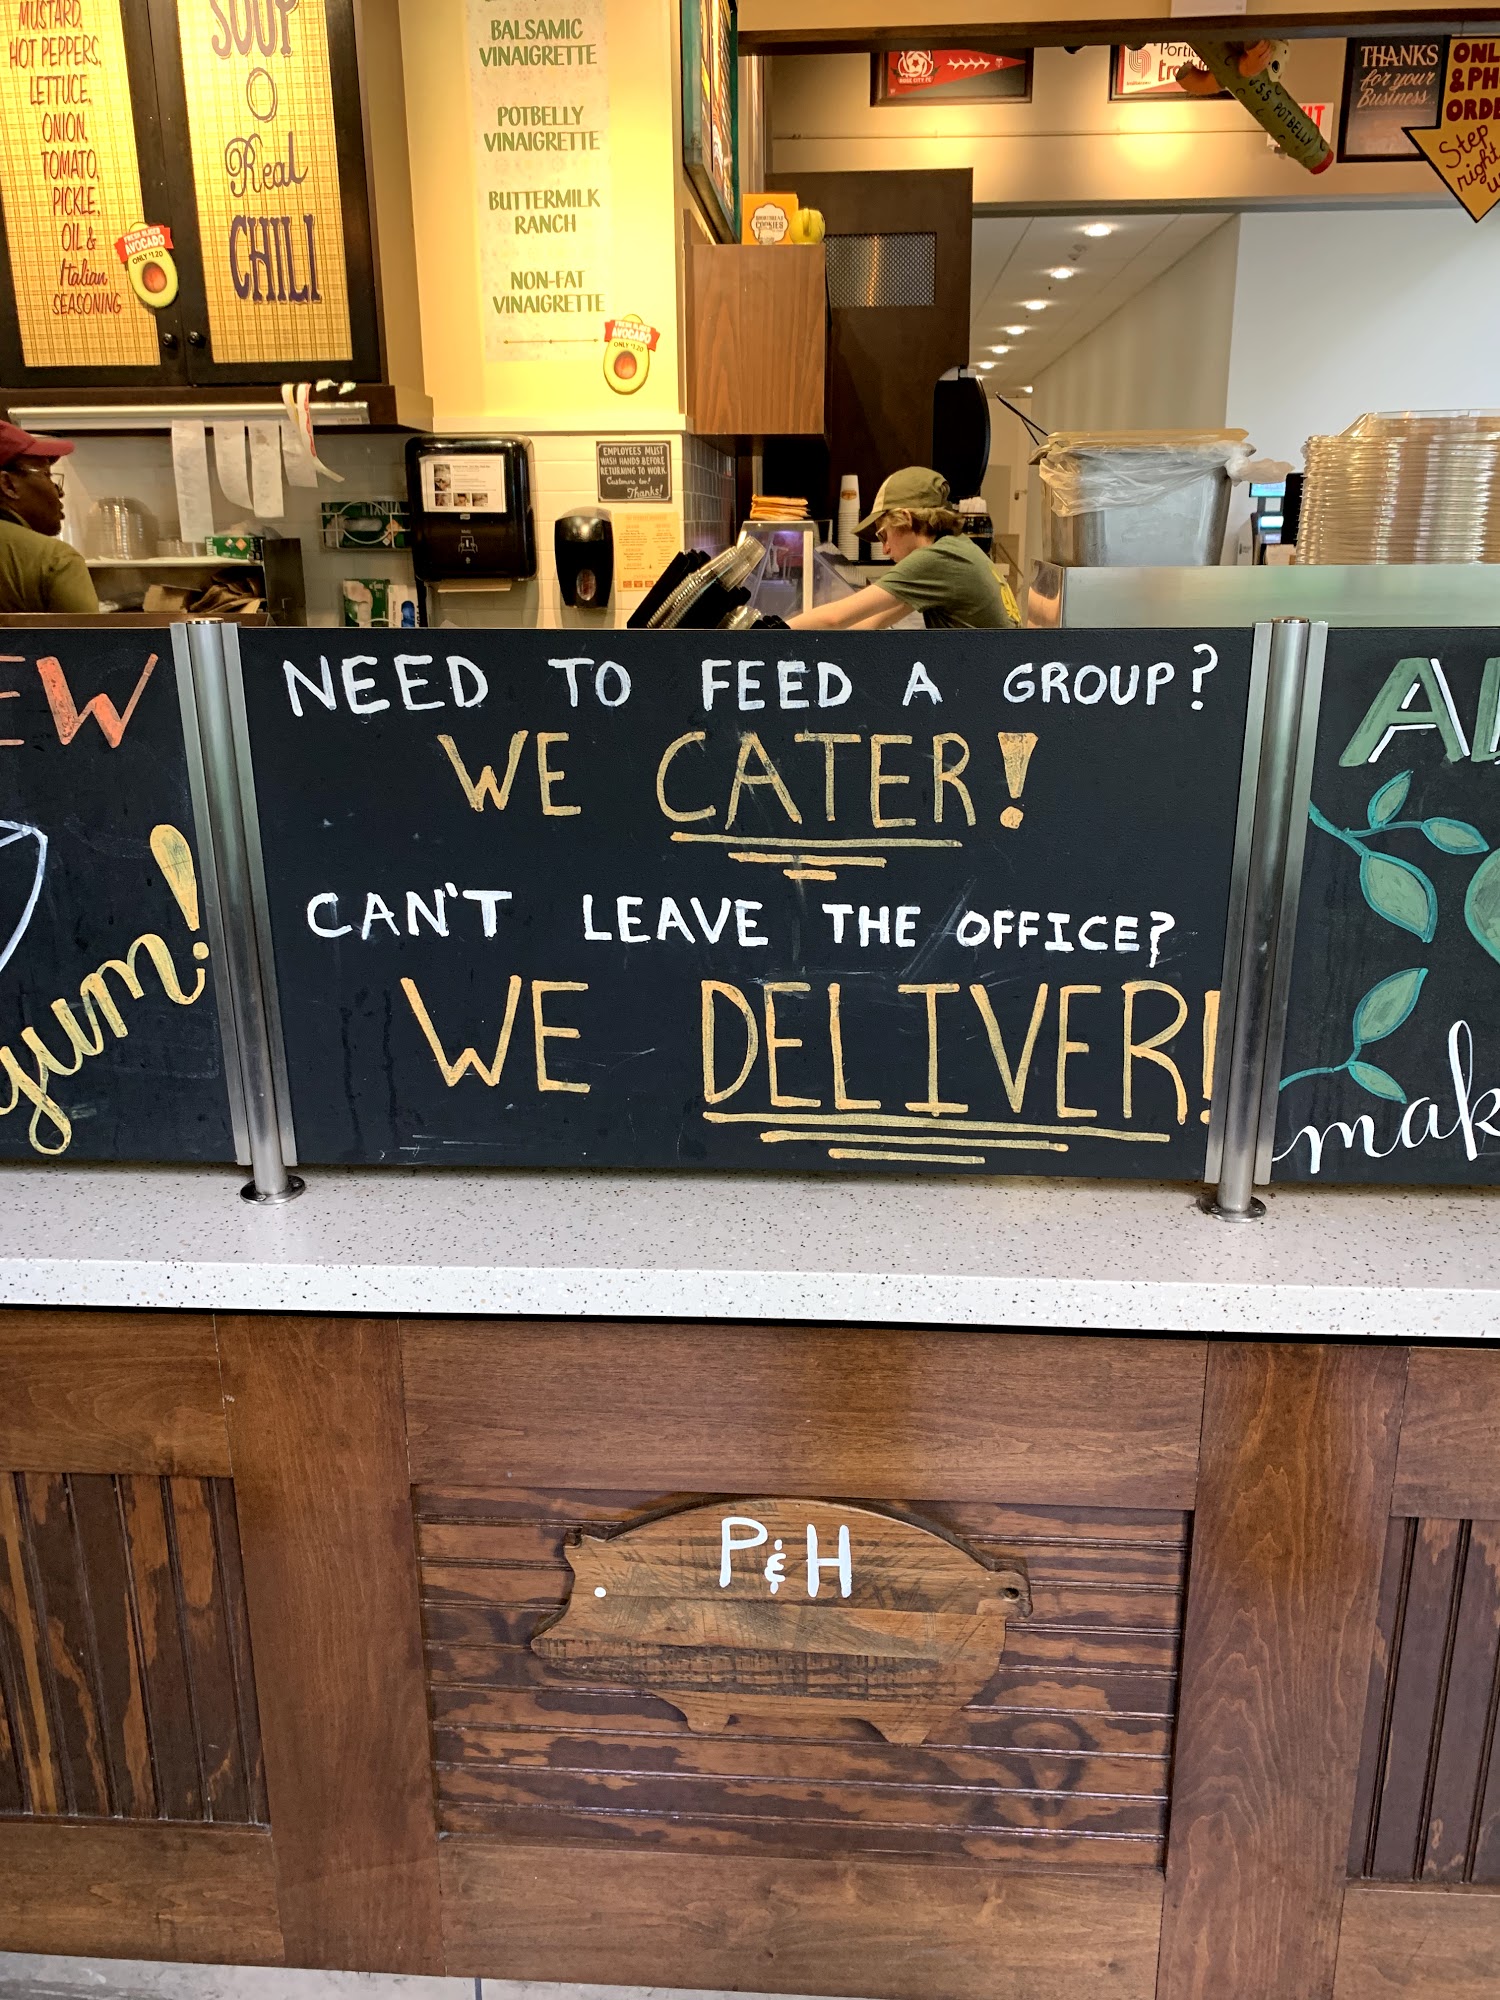 MUSTARD,
HOT PEPPERS,
LETTUCE,
ONION,
TOMATO,
PICKLE,
OIL &
Italian
SEASONING
FRESH SLICED
AVOCADO
ONLY $1.20
SOUP
Real
CHILI
BALSAMIC
VINAIGRETTE
POTBELLY
VINAIGRETTE
BUTTERMILK
RANCH
NON-FAT
VINAIGRETTE
FRESH SLICED
AVOCADO
ONLY $1.20
COOKIES
THANKS
for your
Business
U.S.S. POTBELLY
ONL
& PH
ORDE
Step
right
EMPLOYEES MUST
WASH HANDS BEFORE
RETURNING TO WORK
Customers too!
Thanks!
EW
yum!
NEED TO FEED A GROUP?
WE CATER!
CAN'T LEAVE THE OFFICE?
WE DELIVER!
mak
P&H